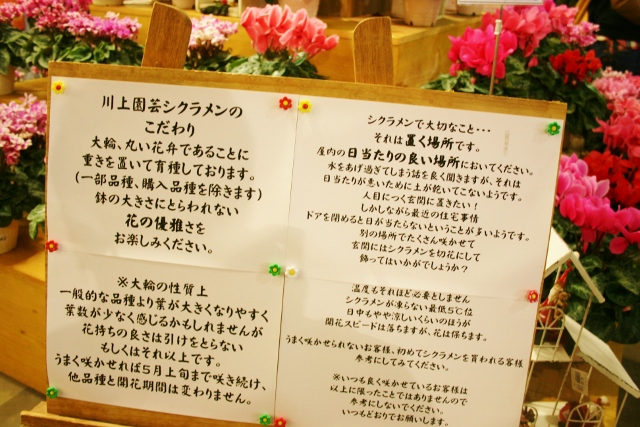 川上園芸シクラメンの
こだわり
大輪、丸い花弁であることに
重きを置いて育種しております。
(一部品種、購入品種を除きます)
鉢の大きさにとらわれない
花の優雅さを
お楽しみください。
※大輪の性質上
一般的な品種より葉が大きくなりやすく
葉数が少なく感じるかもしれませんが
花持ちの良さは引けをとらない
もしくはそれ以上です。
うまく咲かせれば5月上旬まで咲き続け、
他品種と開花期間は変わりません。
シクラメンで大切なこと・・・
それは置く場所です。
屋内の日当たりの良い場所においてください。
水をあげ過ぎてしまう話を良く聞きますが、それは
日当たりが悪いために土が乾いてこないようです。
人目につく玄関に置きたい!
しかしながら最近の住宅事情
ドアを閉めると日が当たらないということが多いようです。
別の場所でたくさん咲かせて
玄関にはシクラメンを切花にして
飾ってはいかがでしょうか?
温度もそれほど必要としません
シクラメンが凍らない最低5℃位
日中もやや涼しいくらいのほうが
開花スピードは落ちますが、花は保ちます。
うまく咲かせられないお客様、初めてシクラメンを買われる客様
参考にしてみてください。
※いつも良く咲かせているお客様は
以上に限ったことではありませんので
参考にしないでください。
いつもどおりでお願いします。